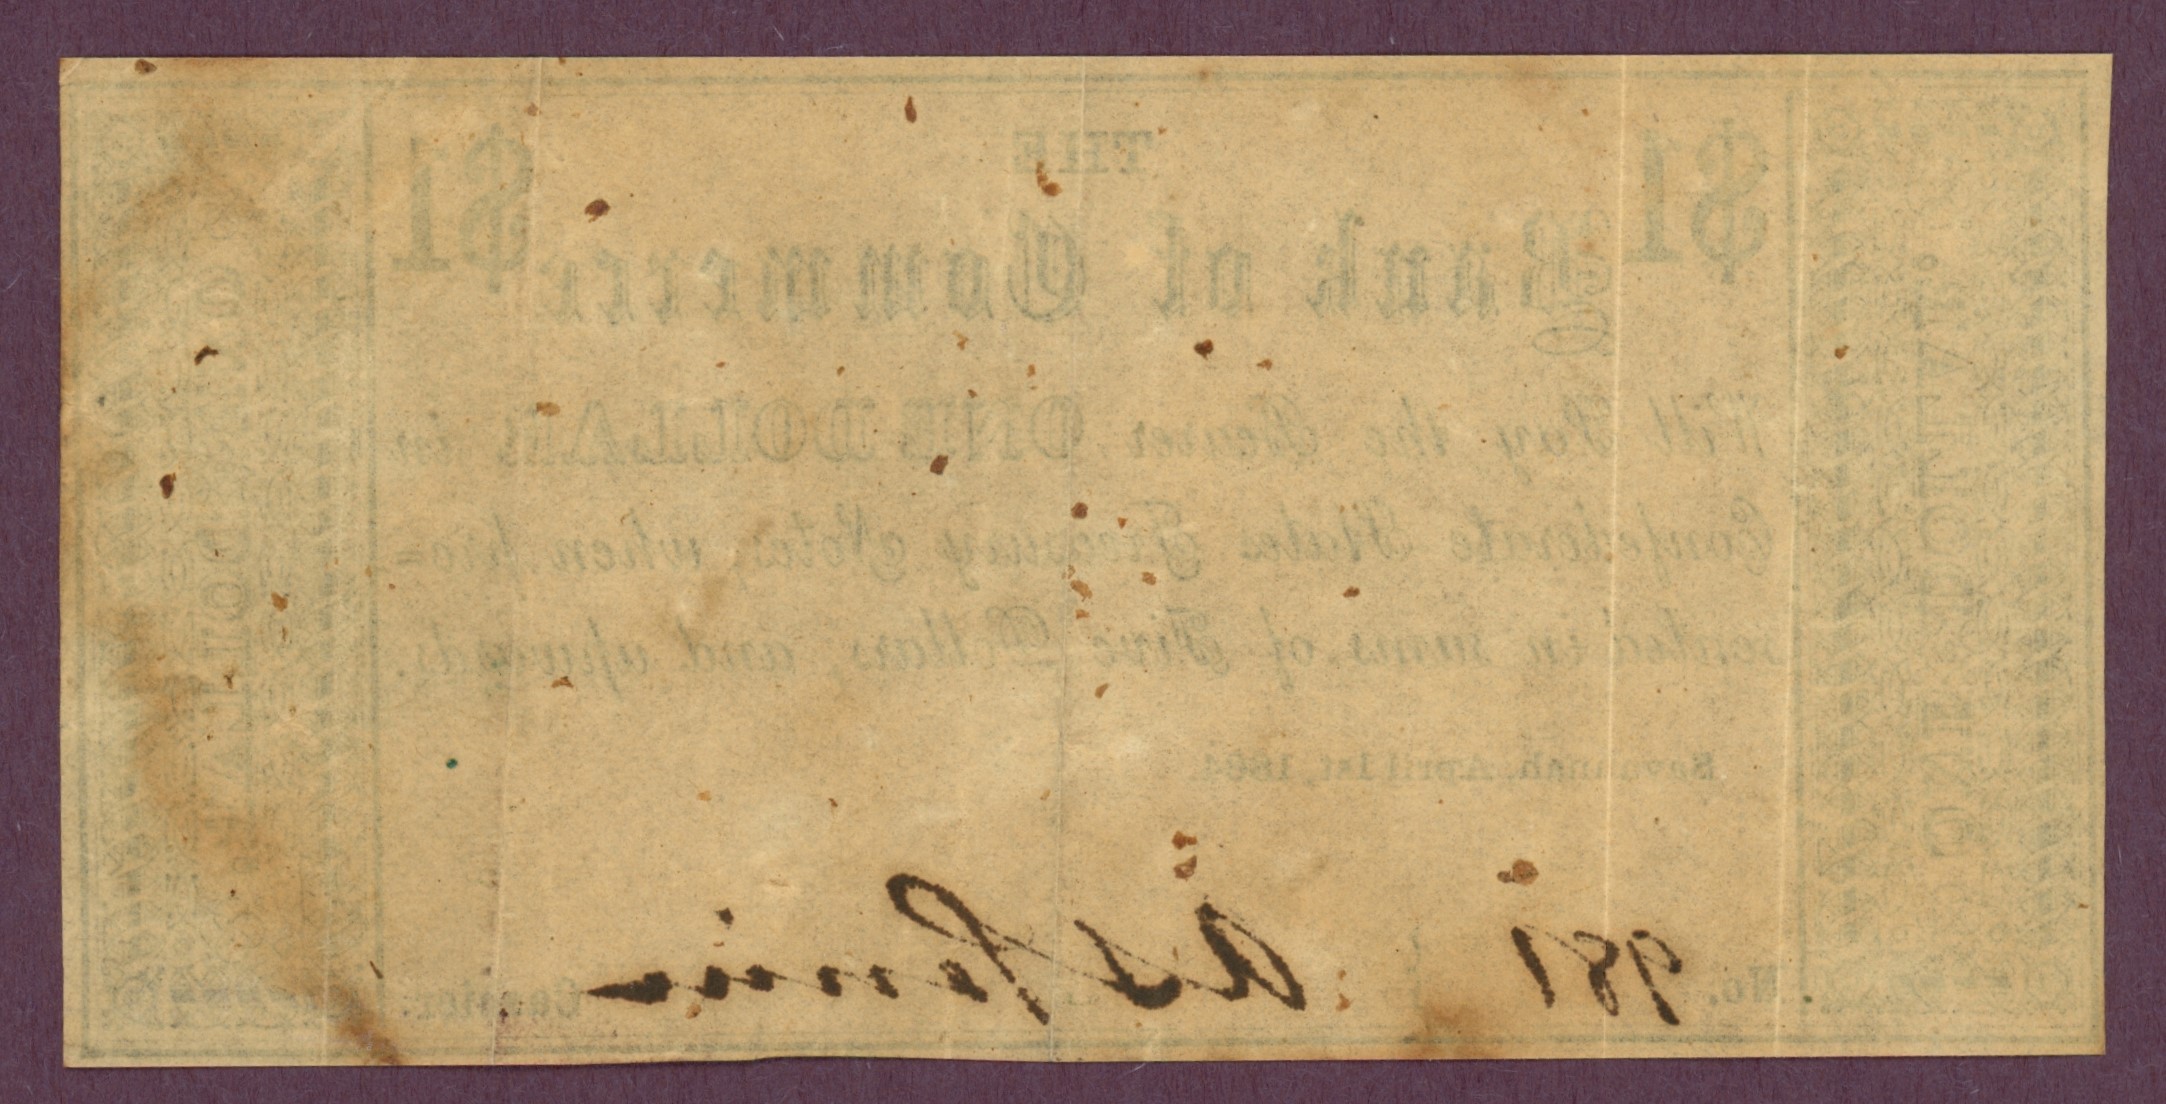 $1 THE $1
Bank of Commerce
Will Pay the Bearer ONE DOLLAR in
Confederate States Treasury Notes, when pre=
sented in sums of Five Dollars, and upwards.
Savannah, April 1st, 1864.
No. 981
Cashier.
ONE DOLLAR.
ONE DOLLAR